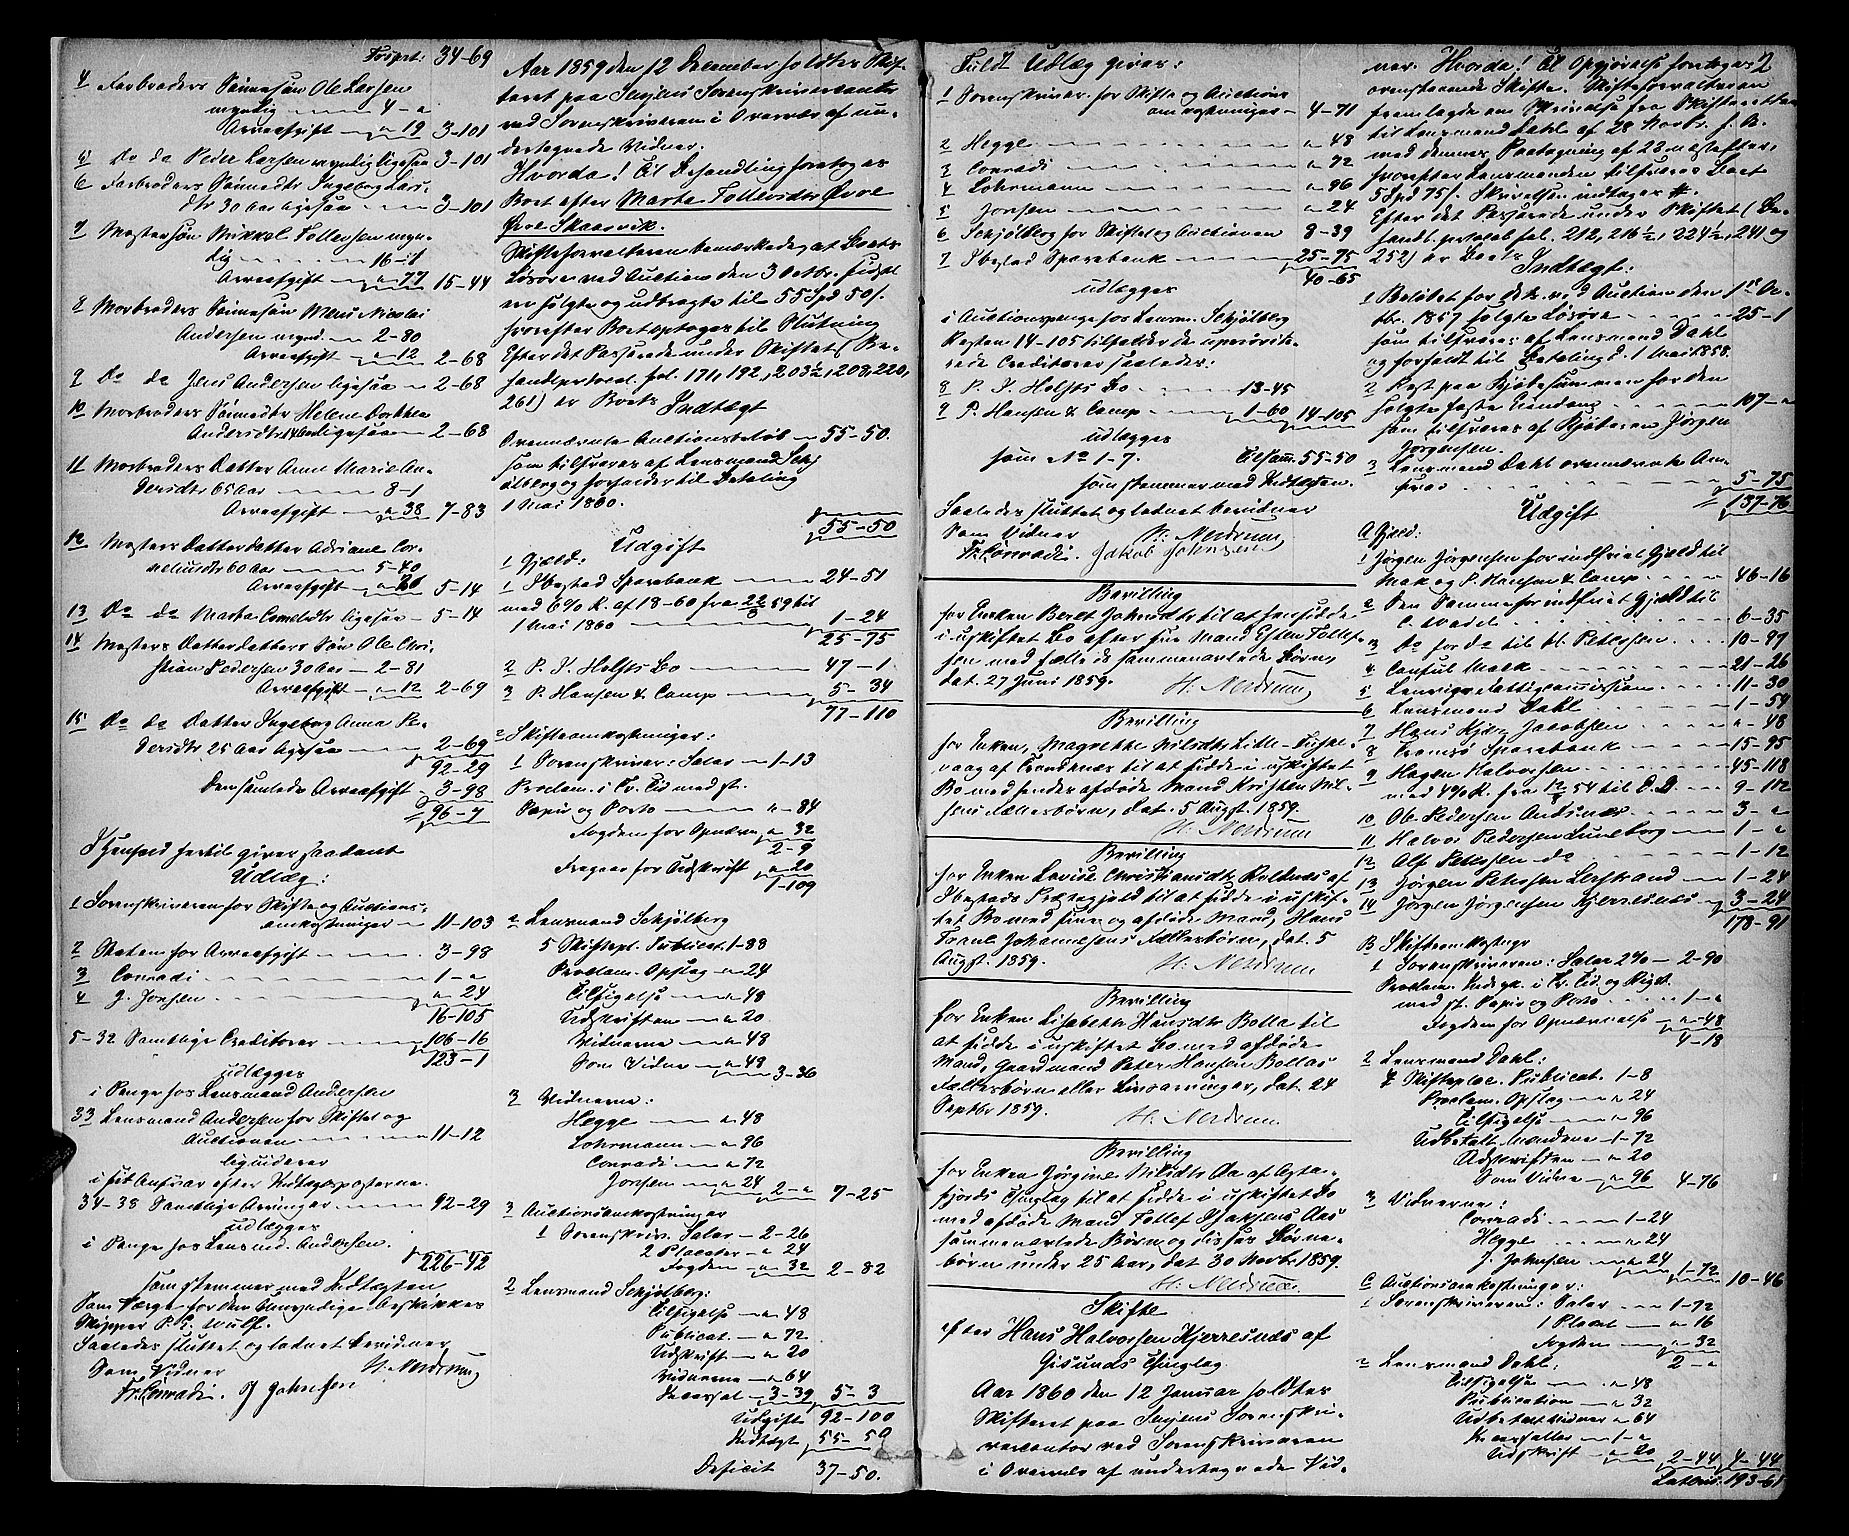 Trspt: 34-69
4 Farbroders Sønnesøn Ole Larsen
myndig — 4 - "
Arveafgift — " 19 3-101
5 Do do Peder Larsen myndig ligesaa 3-101
6 Farbroders Sønnedtr Ingeborg Lars-
dtr 30 Aar ligesaa 3-101
7 Mostersøn Mikkel Tollevsen myn-
dig 16-1
Arveafgift — " 77 15-44
8 Morbroders Sønnesøn Mons Nicolai
Andersen mynd. — 2-80
Arveafgift — " 12 2-68
9 Do do Jens Andersen ligesaa — 2-68
10 Morbroders Sønnedtr Helene Dorthea
Andersdtr ligesaa — 2-68
11 Morbroders Datter Anne Marie An-
dersdtr 65 Aar — 8-1
Arveafgift — " 38 7-83
12 Mosters Datterdatter Adriane Cor-
neliusdtr 60 Aar — 5-40
Arveafgift — 5-14
13 Do do Martha Cornelidtr ligesaa — 5-14
14 Mosters Datterdatters Søn Ole Chri-
stian Pedersen 30 Aar — 2-81
Arveafgift — " 12 2-69
15 Do do Datter Ingeborg Anna Pe-
dersdtr 25 Aar ligesaa — 2-69
92-29
Den samlede Arveafgift — 3-98
96-7
I Henhold hertil giver saadant
Udlæg:
1 Sorenskriveren for Skifte og Auctions-
omkostninger — 11-103
2 Staten for Arveafgift — 3-98
3 Conradi — 1-"
4 J. Jonsen — " 24
16-105
5-32 Samtlige Creditorer — 106-16
123-1
udlægges
i Penge hos Lensmand Andersen
33 Lensmand Andersen for Skiftet og
Auctionen — 11-12
liqviderer
i sit Ansvar efter Indtægtsposterne.
34-38 Samtlige Arvinger — 92-29
udlægges
i Penge hos Lensmd. Andersen.
226-42
som stemmer med Indtægten
Som Værge for den Umyndige beskikkes
Skipper P. L. Wulff.
Saaledes sluttet og ladnet bevidner
Som Vidner H. Nerdrum
Fr. Conradi. J Johnsen
Aar 1859 den 12 December holdtes Skif-
teret paa Senjens Sorenskrivercontor
ved Sorenskriveren i Overvær af un-
dertegnede Vidner.
Hvorda! Til Behandling foretoges
Boet efter Marta Tollevsdtr Øvre
Skaarvik.
Skifteforvalteren bemærkede, at Boets
Løsøre ved Auction den 3 Octbr. sidstl
er solgte og udbragte til 55 Spd 50 s.
hvorefter Boet optoges til Slutning
Efter det Passerede under Skiftet (Be-
handl.protocol. fol. 171, 192, 203½, 208, 220,
261) er Boets Indtægt
Ovennævnte Auctionsbeløb — 55-50.
som tilsvares af Lensmand Schj
ölberg og forfalder til Betaling
1 Mai 1860.
55-50
Udgift
1 Gjæld:
1 Ibestad Sparebank — 24-51
med 6% R. af 18-60 fra 22/8 59 til
1 Mai 1860 — 1-24
25-75
2 P. I. Holsts Bo — 47-1
3 P. Hansen & Comp — 5-34
77-110
2 Skifteomkostninger:
1 Sorenskriver: Salar — 1-13
Proclam. i Tr. Tid med st.
Papir og Porto — " 84
Fogden for Opnævn " 32
2-9
Fragaar for Udskrift " 20
1-109
2 Lensmand Schjølberg
5 Skiftepl. Publicat. 1-88
Proclam. Opslag — " 24
Tilsigelse — " 48
Udskriften — " 20
Vidnerne — " 48
Som Vidne — " 48
3-36
3 Vidnerne:
Hegge — " 48
Lohrmann — " 96
Conradi — " 72
Jonsen — " 24 2-" 7-25
3 Auctionsomkostninger
1 Sorenskriv. Salar — 2-26
2 Placater — " 24
Fogden — " 32 2-82
2 Lensmand Schjølberg:
Tilsigelse — " 48
Publicat. — " 72
Udskrift — " 20
Vidnerne — " 64
3-39 5-3
Udgift 92-100
Indtægt 55-50
Deficit 37-50.
Fuldt Udlæg giver:
1 Sorenskriver. for Skifte og Auctions
omkostninger — 4-71
2 Hegge — " 48
3 Conradi — " 72
4 Lohrmann — " 96
5 Jonsen — " 24
6 Schjølberg for Skiftet og Auctionen 8-39
7 Ibestad Sparebank — 25-75
40-65
udlægges
i Auctionspenge hos Lensm. Schjølberg
Resten 14-105 tilfalder de uprivile-
rede Creditorer saaledes:
8 P. I. Holsts Bo — 13-45
9 P. Hansen & Comp — 1-60 14-105
udlægges
som No 1-7. Tilsam. 55-50
som stemmer med Indtægten.
Saaledes sluttet og ladnet bevidner
Som Vidner H: Nerdrum
Fr. Conradi. Jakob Johnsen
Bevilling
for Enken Beret Johnsdtr til at hensidde
i uskiftet Bo efter sin Mand Esten Tollef-
sen med fælleds sammenavlede Børn,
dat. 27 Juni 1859. H. Nerdrum
Bevilling
for Enken, Magrethe Nilsdtr Lille-Fuske-
vaag af Trondenæs til at sidde i uskiftet
Bo med hendes afdøde Mand Kristen Nil-
sens Fællesbørn, dat. 5 Augst. 1859.
H. Nerdrum
Bevilling
for Enken Lovise Christiansdtr Rollnæs af
Ibestads Præstegjeld til at sidde i uskif-
tet Bo med sin og afdøde Mand, Hans
Johannesens Fællesbørn, dat. 5
Augst. 1859. H. Nerdrum
Bevilling
for Enken Elisabeth Hansdtr Bolla til
at sidde i uskiftet Bo med afdøde
Mand, Gaardmand Peter Hansen Bollas
Fællesbørn eller Livsarvinger, dat. 24
Septbr 1859. H. Nerdrum
Bevilling
for Enken Jørgine Nilsdtr Aa af Asta-
fjords Thinglag til at sidde i uskiftet Bo
med afdøde Mand Tollef Isaksens Aas
sammenavlede Børn og disses Børne-
børn under 25 Aar, dat 30 Novbr. 1859.
H. Nerdrum
Skifte
efter Hans Halvorsen Kjerresnæs af
Gisunds Thinglag.
Aar 1860 den 12 Januar holdtes
Skifteret paa Senjens Sorenskri-
vercontor ved Sorenskriveren
i Overvær af undertegnede Vid-
2
ner. Hvorda! Til Opgjørelse foretoges
ovenstaaende Skifte. Skifteforvalteren
fremlagde en Skrivelse fra Skifteretten
til Lensmand Dahl af 28 Novbr. f. A.
med dennes Paategning af 28 næstefter,
hvorefter Lensmanden tilsvarer Boet
5 Spd 75 s. Skrivelsen indtages #.
Efter det Passerede under Skiftet (Be-
handl. protokol fol. 212, 216½, 224½, 241 og
252) er Boets Indtægt:
1 Beløbet for de k. ved Auction den 1ste Oc-
tbr. 1857 solgte Løsøre — 25-1
som tilsvares af Lensmand Dahl
og forfaldt til Betaling d. 1 Mai 1858.
2 Rest paa Kjøbesummen for den
solgte faste Eiendom — 107-"
som tilsvares af Kjøberen Jørgen
Jørgensen.
3 Lensmand Dahl ovennævnte An-
svar — 5-75
137-76
Udgift
A Gjæld:
1 Jørgen Jørgensen for indfriet Gjæld til
Mack og P. Hansen & Comp — 46-16
2 Den Samme for indfriet Gjæld til
C. Wadel — 6-35
3 Do for do til H. Petersen — 10-87
4 Consul Mack — 21-26
5 — 11-30
6 Lensmand Dahl — 1-54
7 Hans Kjær Jacobsen — " 48
8 Tromsø Sparebank — 15-95
9 Hagen Halvorsen — 45-118
med 4% R. fra 12/5 54 til D.D. — 9-112
10 Ole Pedersen — 3-"
11 Halvor Pedersen — 1-"
12 Alf Petersen do — 1-12
13 Jørgen Petersen Leistrand — 1-24
14 Jørgen Jørgensen Kjerresnæs — 3-24
178-91
B Skifteomkostngr
1 Sorenskriveren: Salar 2% — 2-90
Proclam. Indryk. i Tr. Tid. og Rigst.
med st. Papir og Porto — 1-"
Fogden for Opnævnelse — " 48
4-18
2 Lensmand Dahl:
4 Skifteplac. Publicat. 1-8
Proclam. Opslag — " 24
Tilsigelse — " 96
Udbetalt Mændene 1-72
Udskriften — " 20
Som Vidne — " 96 4-76
3 Vidnerne:
Conradi — 1-24
Hegge — " 24
J. Johnsen — " 24 1-72 10-46
C Auctionsomkostninger:
1 Sorenskriveren: Salar — 1-72
1 Placat — " 16
Fogden — " 32
2-"
2 Lensmand Dahl:
Tilsigelse — " 48
Publication — " 32
Udbetalt Vidner " 64
1-"
Udskrift — " 20 2-44 4-44
Latus: 193-61